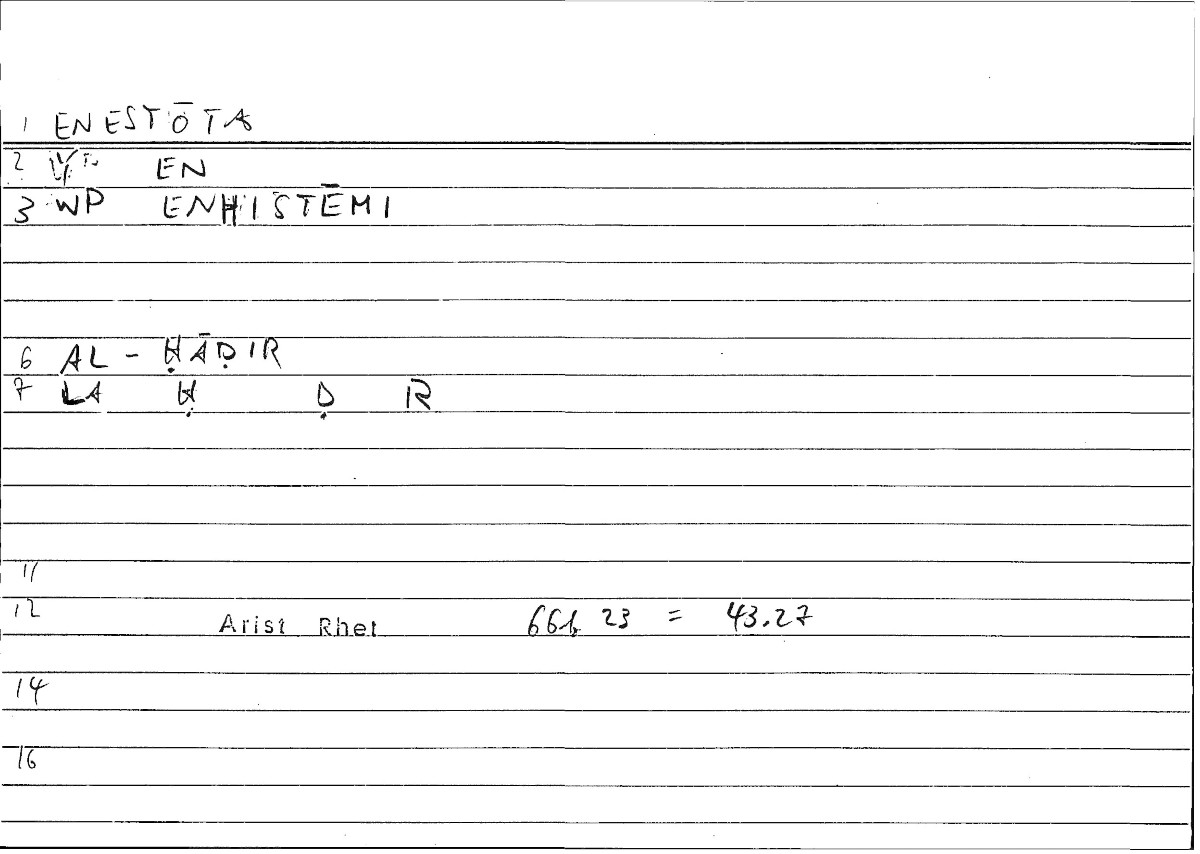 1 ENESTŌTA
2 EN
3 WP ENHISTĒMI
6 AL - ḤĀḌIR
7 LA Ḥ Ḍ R
11
12 Arist Rhet 66b 23 = 43.27
14
16